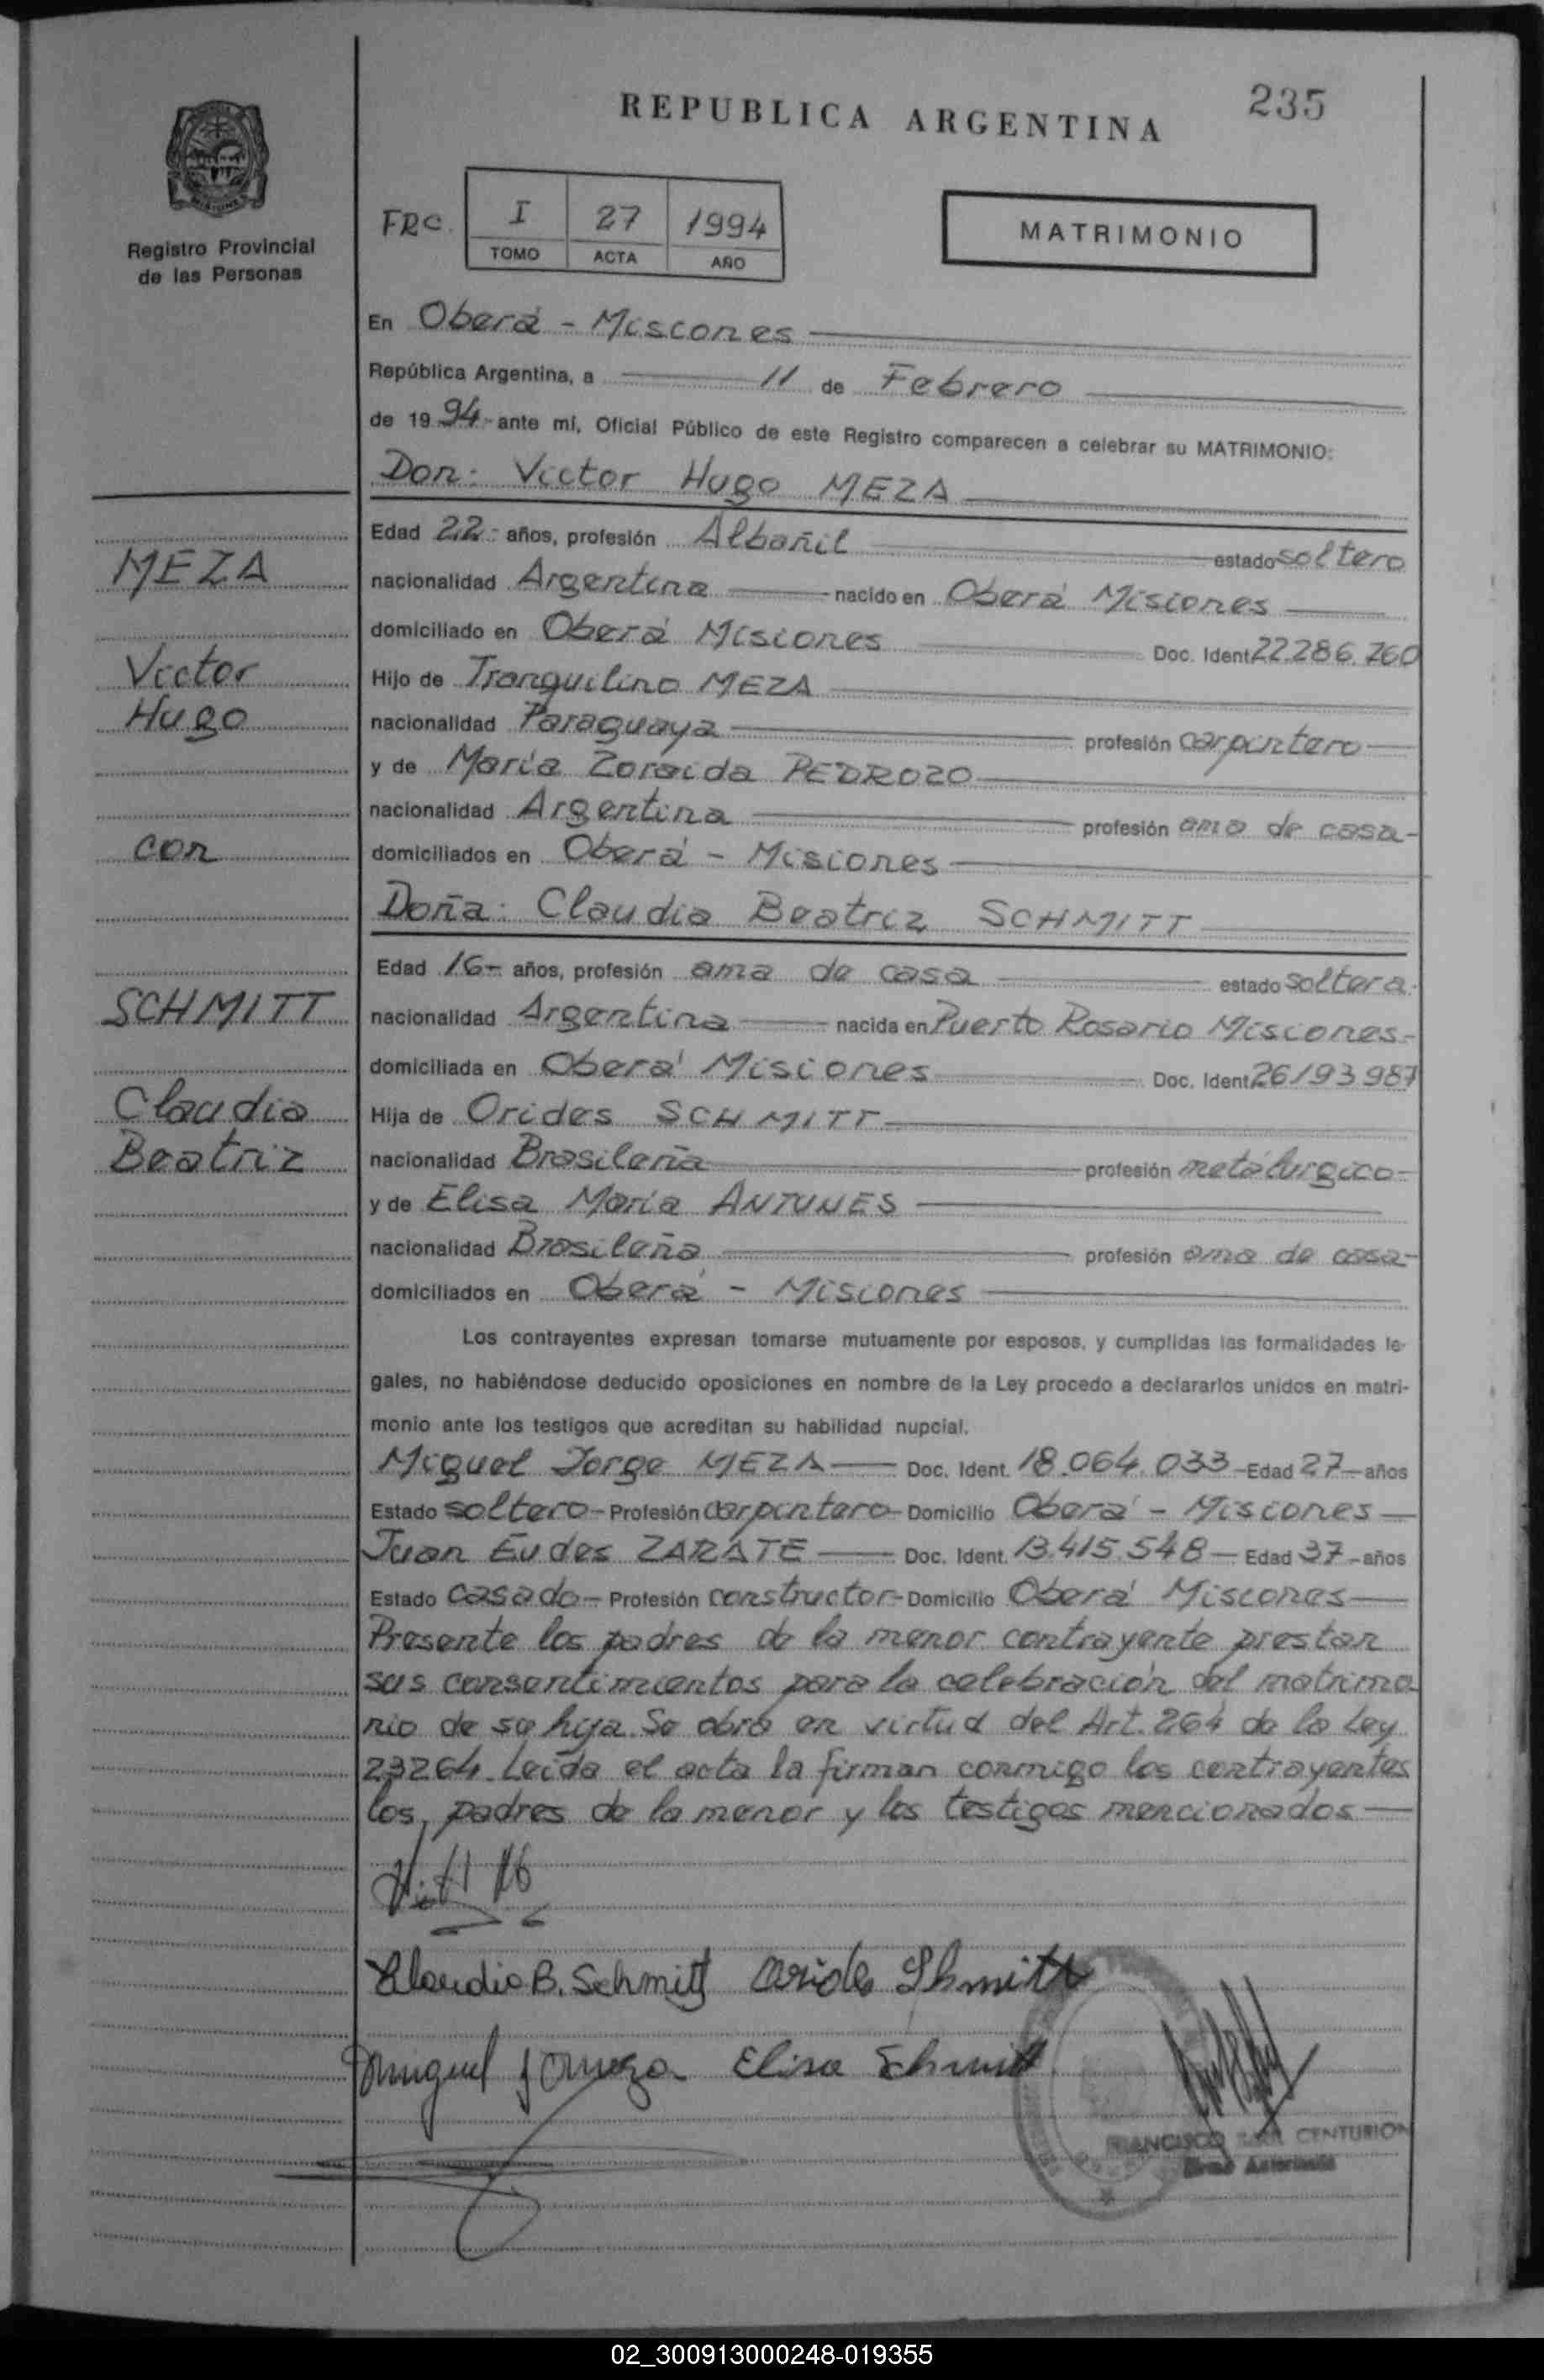 REPUBLICA ARGENTINA
235
Registro Provincial
de las Personas
FRC.
I 27 1994
TOMO ACTA AÑO
MATRIMONIO
En Oberá - Misiones
República Argentina, a 11 de Febrero
de 1994- ante mí, Oficial Público de este Registro comparecen a celebrar su MATRIMONIO:
Don: Victor Hugo MEZA
Edad 22- años, profesión Albañil estado soltero
MEZA
nacionalidad Argentina nacido en Oberá Misiones
domiciliado en Oberá Misiones Doc. Ident. 22.286.760
Victor
Hijo de Tranquilino MEZA
Hugo
nacionalidad Paraguaya profesión carpintero
y de María Zoraida PEDROZO
nacionalidad Argentina profesión ama de casa-
con
domiciliados en Oberá - Misiones
Doña: Claudia Beatriz SCHMITT
Edad 16- años, profesión ama de casa estado soltera-
SCHMITT
nacionalidad Argentina nacida en Puerto Rosario Misiones-
domiciliada en Oberá Misiones Doc. Ident. 26193987
Claudia
Hija de Orides SCHMITT
Beatriz
nacionalidad Brasileña profesión metálurgico-
y de Elisa María ANTUNES
nacionalidad Brasileña profesión ama de casa-
domiciliados en Oberá - Misiones
Los contrayentes expresan tomarse mutuamente por esposos, y cumplidas las formalidades le-
gales, no habiéndose deducido oposiciones en nombre de la Ley procedo a declararlos unidos en matri-
monio ante los testigos que acreditan su habilidad nupcial.
Miguel Jorge MEZA Doc. Ident. 18.064.033 - Edad 27 - años
Estado soltero - Profesión carpintero - Domicilio Oberá - Misiones
Juan Eudes ZARATE Doc. Ident. 13.415.548 - Edad 37 - años
Estado casado - Profesión constructor - Domicilio Oberá Misiones
Presente los padres de la menor contrayente prestan
sus consentimientos para la celebración del matrimo
nio de su hija. Se obró en virtud del Art. 264 de la Ley
23264. Leída el acta la firman conmigo los contrayentes
los, padres de la menor y los testigos mencionados
Claudia B. Schmitt Orides Shmitt
Miguel J Meza Elisa Schmitt
FRANCISCO CENTURION
02_300913000248-019355